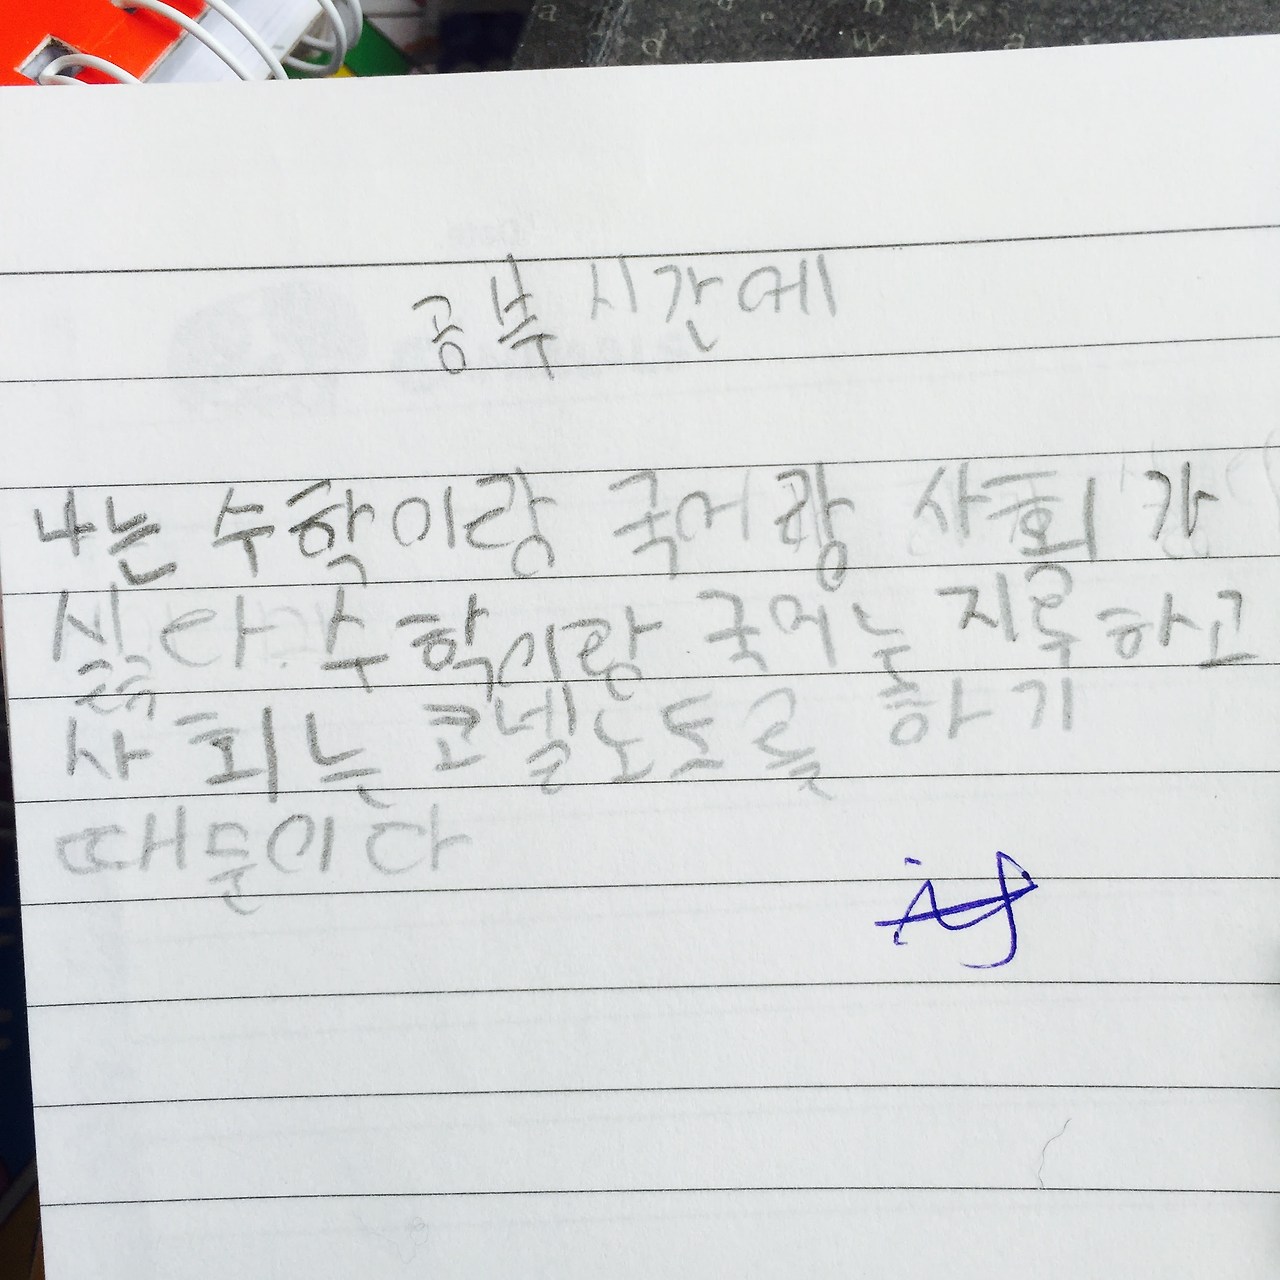 공부 시간에
나는 수학이랑 국어랑 사회가
싫다 수학이랑 국어는 지루하고
사회는 코넬노트를 하기
때문이다